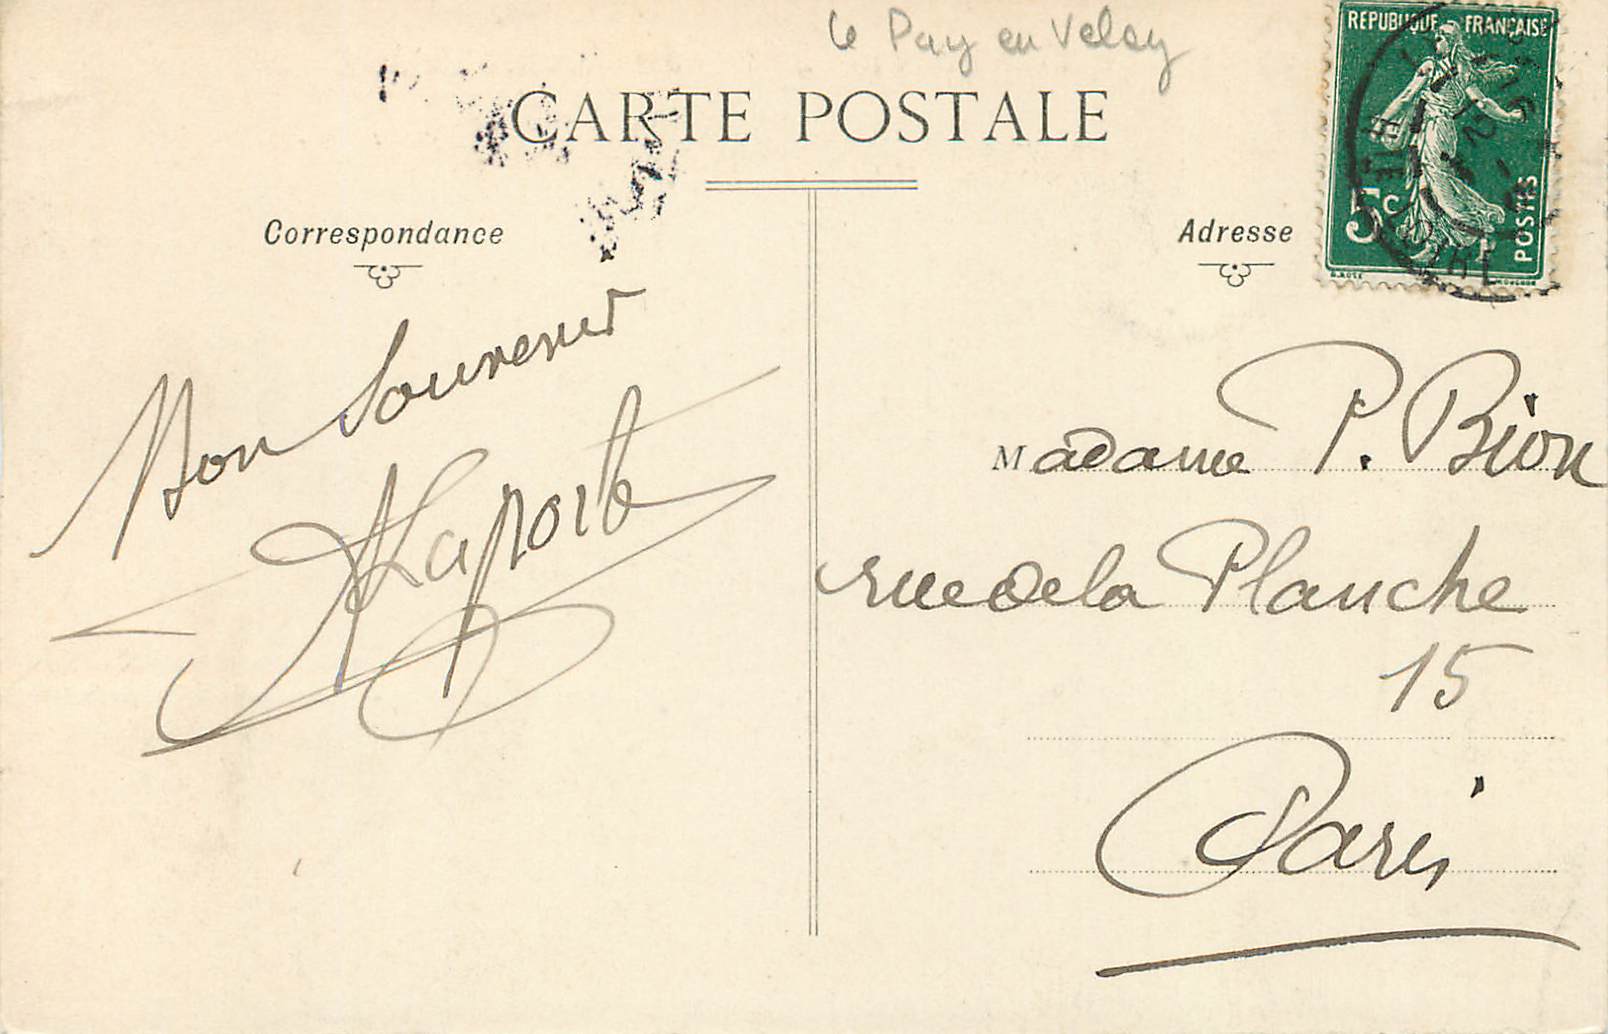 Le Puy en Velay
CARTE POSTALE
REPUBLIQUE FRANÇAISE
5c
POSTES
HTE LOIRE
Correspondance
Adresse
Bon Souvenir
Laporte
Madame P. Bion
rue de la Planche
15
Paris